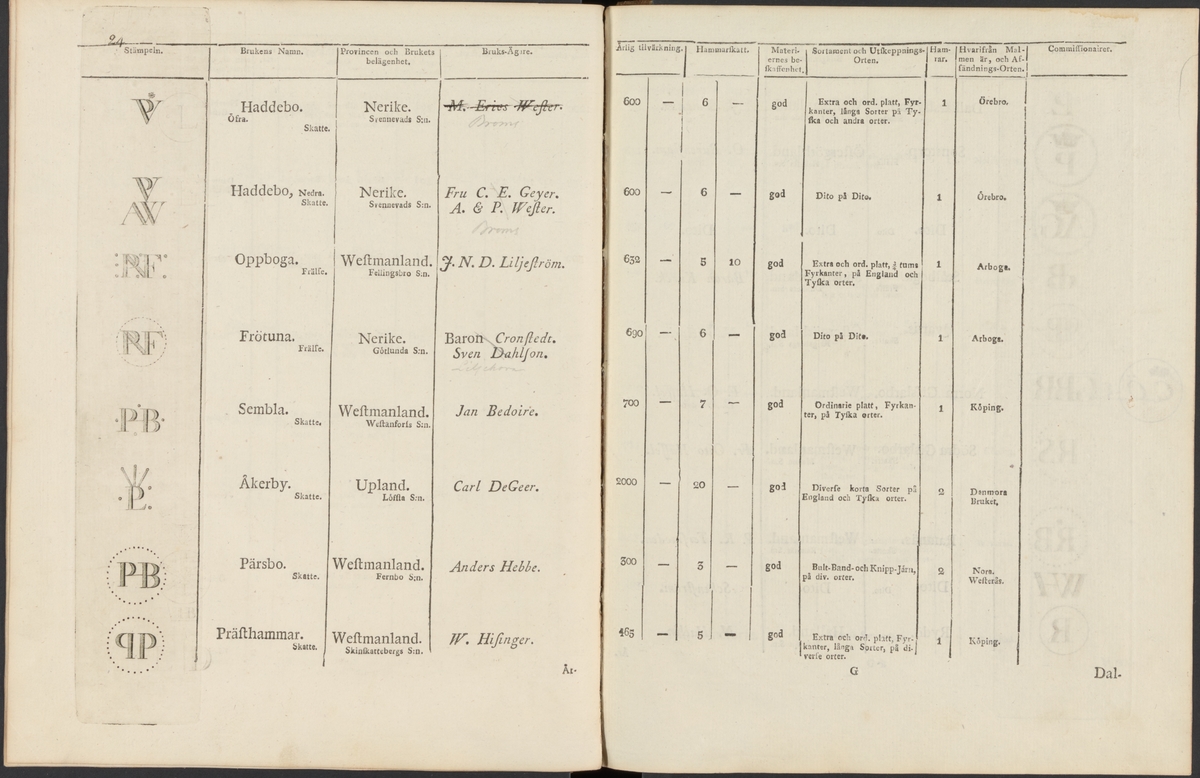 24
Stämpeln. Brukens Namn. Provincen och Brukets belägenhet. Bruks-Ägare. Årlig tilvärkning. Hammarſkatt. Materiernes beſkaffenhet. Sortament och Utſkeppnings-Orten. Hamrar. Hvarifrån Malmen är, och Afſändnings-Orten. Commiſſionairer.
PV
Haddebo.
Öfra.
Skatte.
Nerike.
Svennevads S:n.
M. Erics Weſter.
Broms
600 — 6 — god
Extra och ord. platt, Fyr-
kanter, långa Sorter på Ty-
ſka och andra orter.
1
Örebro.
PV
AW
Haddebo, Nedra.
Skatte.
Nerike.
Svennevads S:n.
Fru C. E. Geyer.
A. & P. Weſter.
Broms
600 — 6 — god
Dito på Dito.
1
Örebro.
RF
Oppboga.
Frälſe.
Weſtmanland.
Fellingsbro S:n.
J. N. D. Liljeſtröm.
632 — 5 10 god
Extra och ord. platt, tums
Fyrkanter, på England och
Tyſka orter.
1
Arboga.
RF
Frötuna.
Frälſe.
Nerike.
Götlunda S:n.
Baron Cronſtedt.
Sven Dahlſon.
690 — 6 — god
Dito på Dito.
1
Arboga.
PB
Sembla.
Skatte.
Weſtmanland.
Weſtanfors S:n.
Jan Bedoire.
700 — 7 — god
Ordinarie platt, Fyrkan-
ter, på Tyſka orter.
1
Köping.
PL
Åkerby.
Skatte.
Upland.
Löfſta S:n.
Carl DeGeer.
2000 — 20 — god
Diverſe korta Sorter på
England och Tyſka orter.
2
Danmora
Bruket.
PB
Pärsbo.
Skatte.
Weſtmanland.
Fernbo S:n.
Anders Hebbe.
300 — 3 — god
Bult-Band- och Knipp-Järn,
på div. orter.
2
Nora.
Weſterås.
PP
Präſthammar.
Skatte.
Weſtmanland.
Skinſkattebergs S:n.
W. Hiſinger.
465 — 5 — god
Extra och ord. platt, Fyr-
kanter, långa Sorter, på di-
verſe orter.
1
Köping.
Åt-
G
Dal-